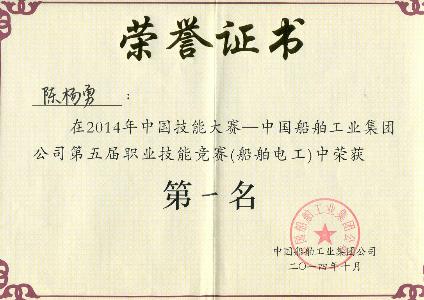 荣誉证书
陈杨勇：
在2014年中国技能大赛—中国船舶工业集团
公司第五届职业技能竞赛(船舶电工)中荣获
第一名
中国船舶工业集团公司
中国船舶工业集团公司
二〇一四年十月